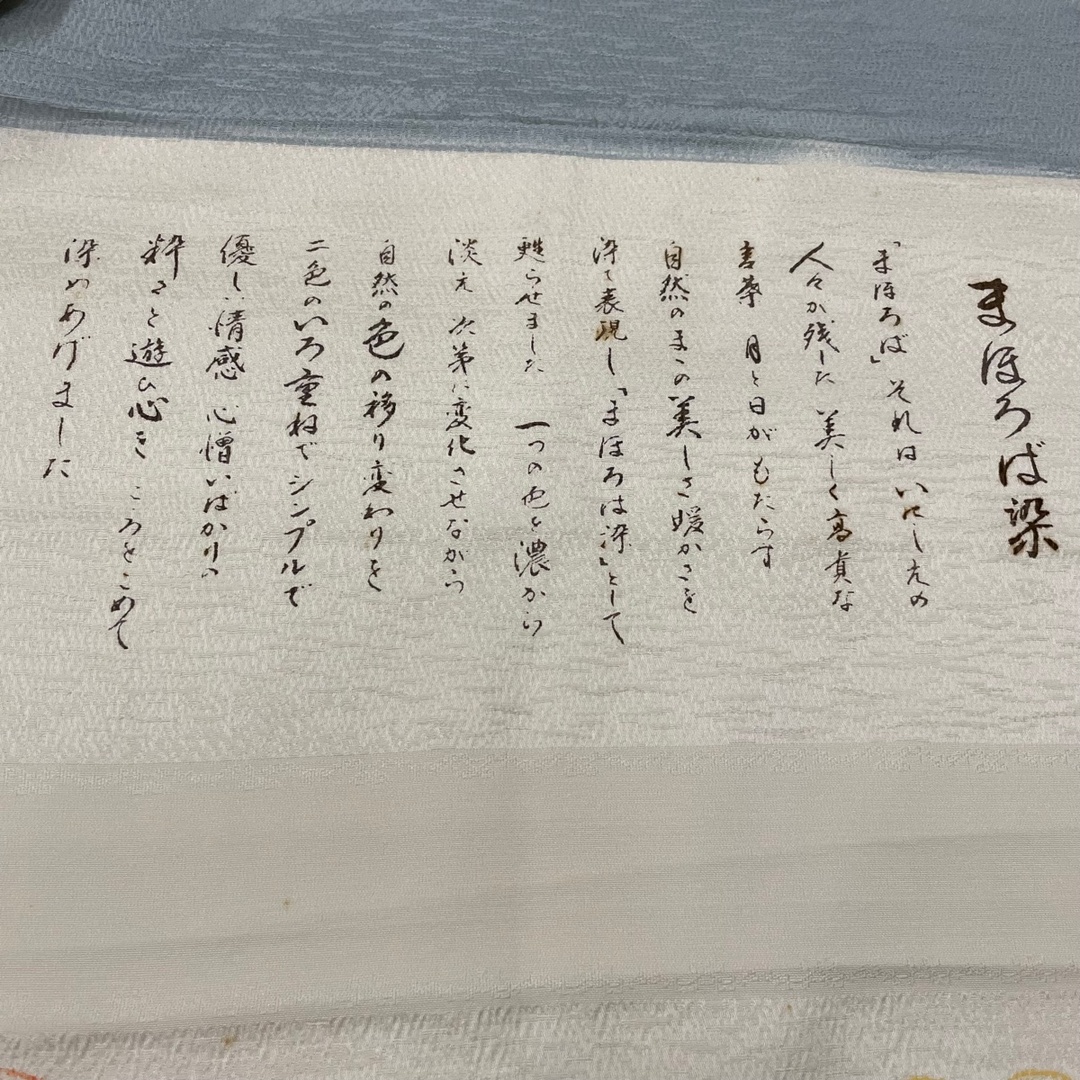 まほろば染
「まほろば」それは いにしえの
人々が残した 美しく高貴な
言葉 月と日が もたらす
自然のままの美しさ 媛かさを
染で表現し「まほろば染」として
甦らせました 一つの色を濃から
淡え 次第に変化させながら
自然の色の移り変わりを
二色のいろ重ねでシンプルで
優しい情感 心憎いばかりの
粋さと遊び心を こころをこめて
染めあげました